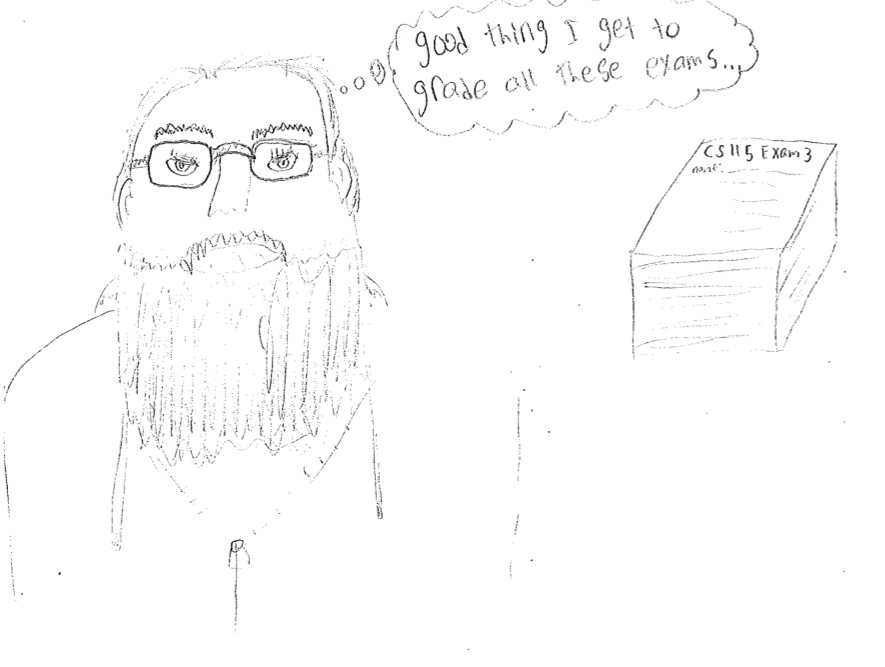 good thing I get to
grade all these exams...
CS 115 Exam 3
name: